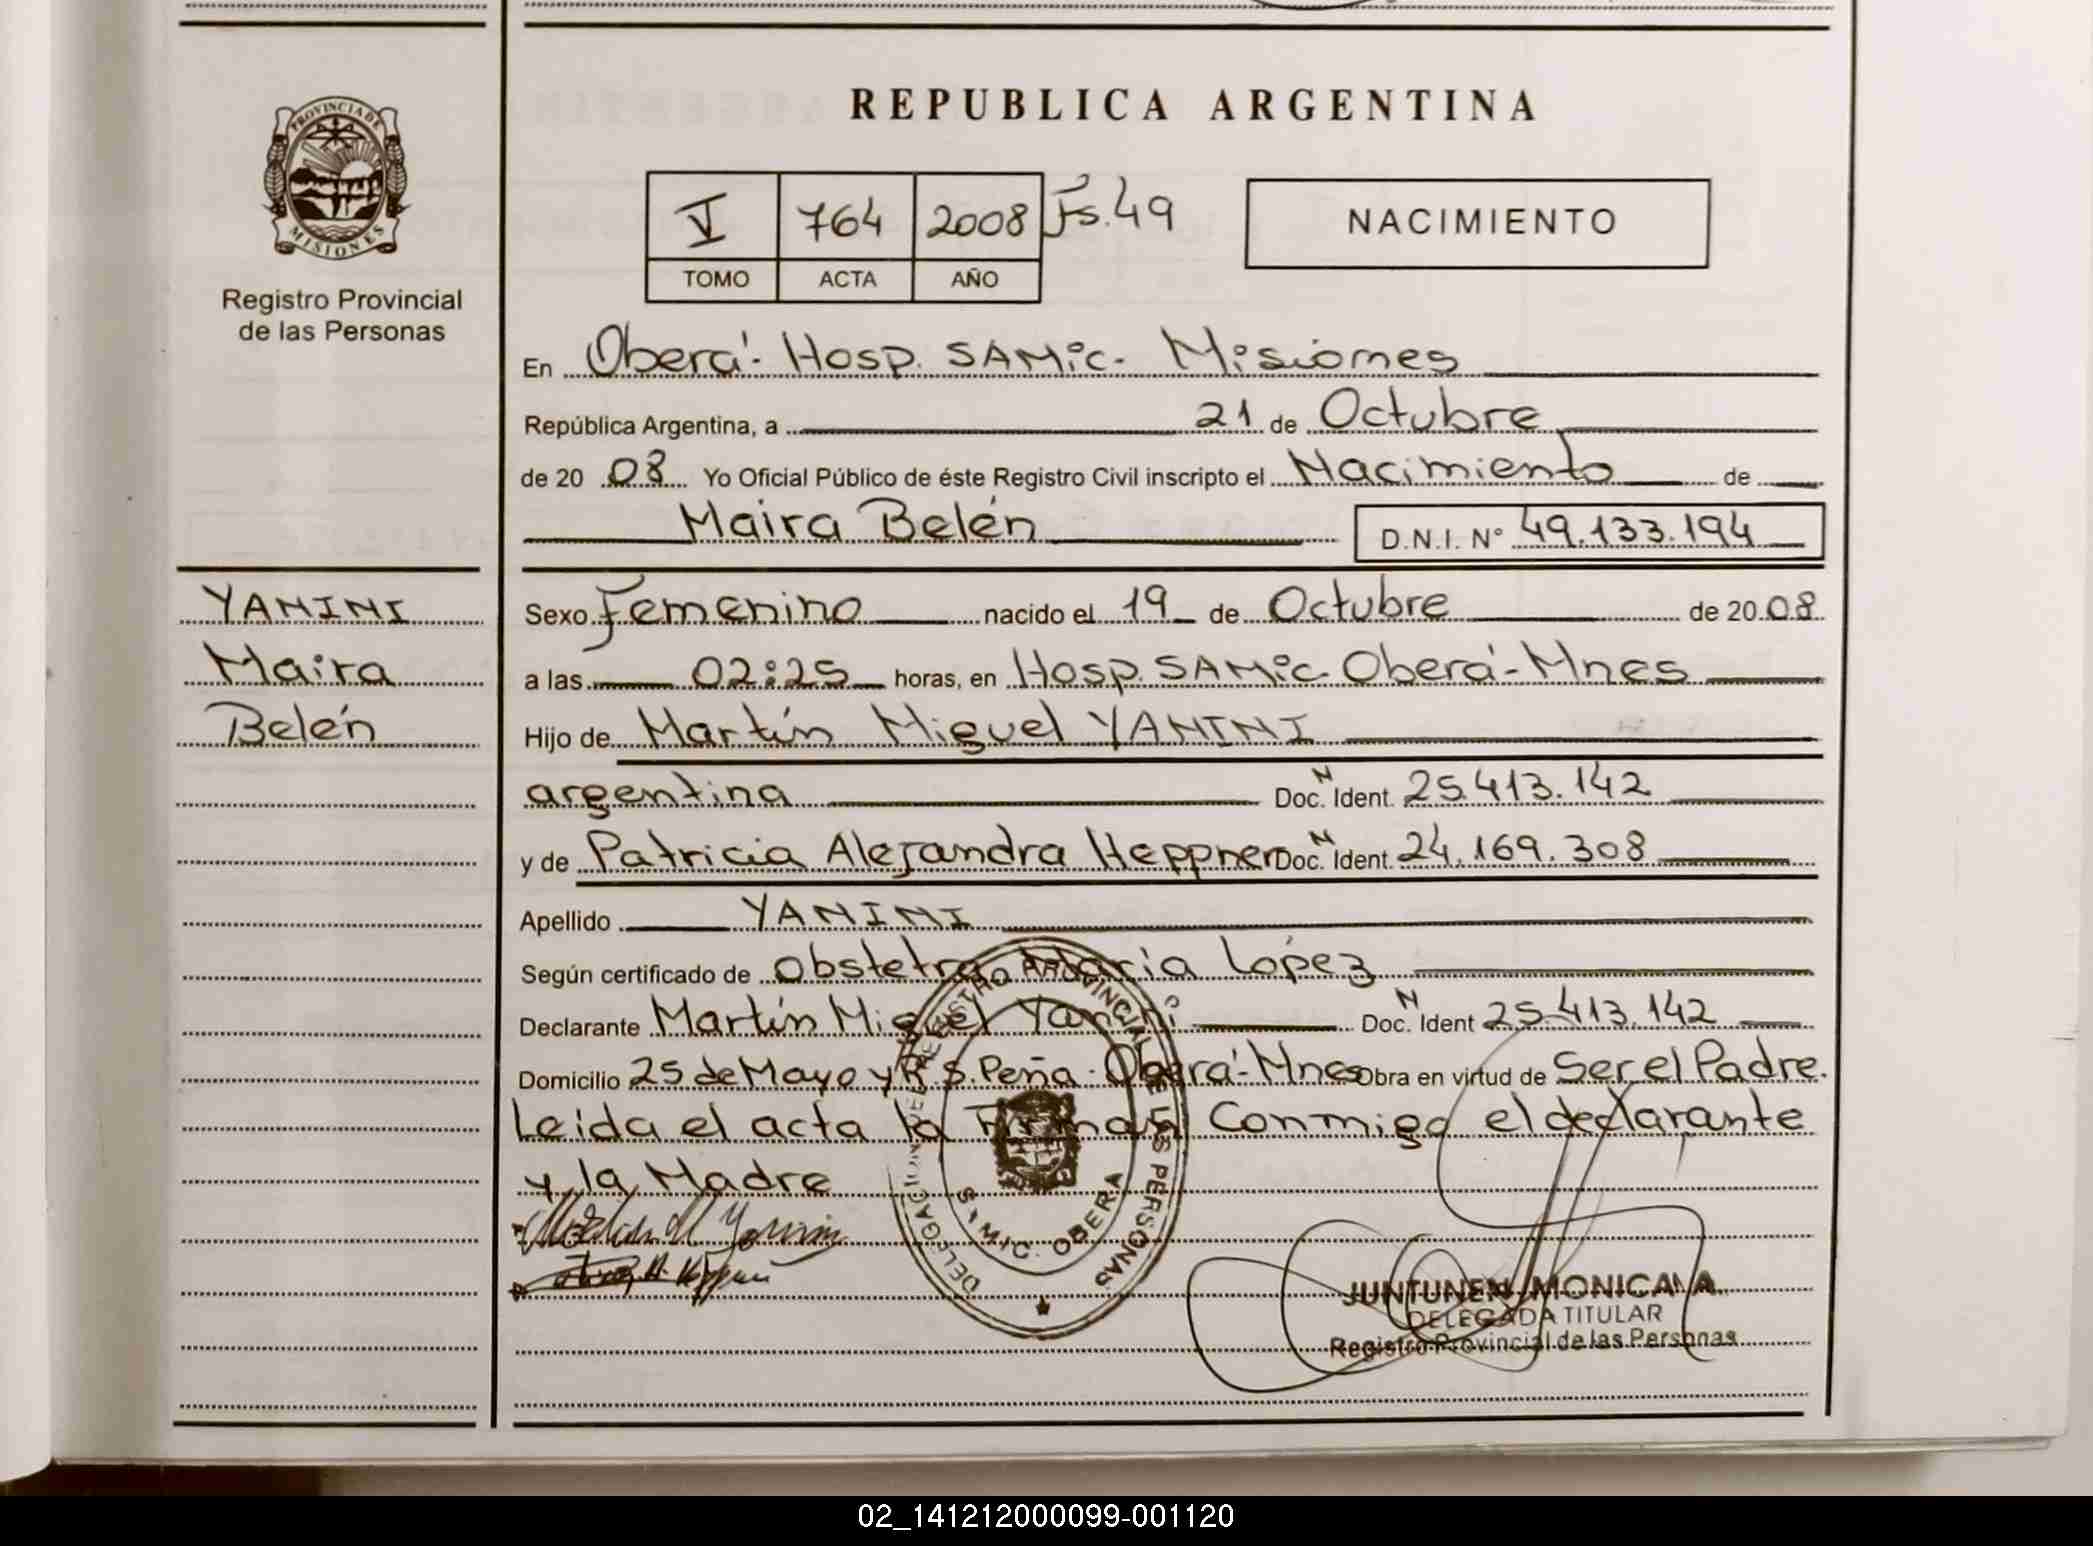 REPUBLICA ARGENTINA
PROVINCIA DE MISIONES
Registro Provincial
de las Personas
V 764 2008 Fs. 49
TOMO ACTA AÑO
NACIMIENTO
En Oberá - Hosp. SAMic - Misiones
República Argentina, a 21 de Octubre
de 2008 Yo Oficial Público de éste Registro Civil inscripto el Nacimiento de
Maira Belén D.N.I. N° 49.133.194
YANINI
Maira
Belén
Sexo Femenino nacido el 19 de Octubre de 2008
a las 02:25 horas, en Hosp. SAMic - Oberá - Mnes
Hijo de Martín Miguel YANINI
argentina Doc. N Ident. 25.413.142
y de Patricia Alejandra Heppner Doc. N Ident. 24.169.308
Apellido YANINI
Según certificado de obstetra María López
Declarante Martín Miguel Yanini Doc. N Ident 25.413.142
Domicilio 25 de Mayo y R.S. Peña - Oberá - Mnes Obra en virtud de Ser el Padre.
Leida el acta la Firman Conmigo el declarante
y la Madre
DELEGACION DEL REGISTRO PROVINCIAL DE LAS PERSONAS
SAMIC. OBERA
JUNTUNEN MONICA A.
DELEGADA TITULAR
Registro Provincial de las Personas
02_141212000099-001120